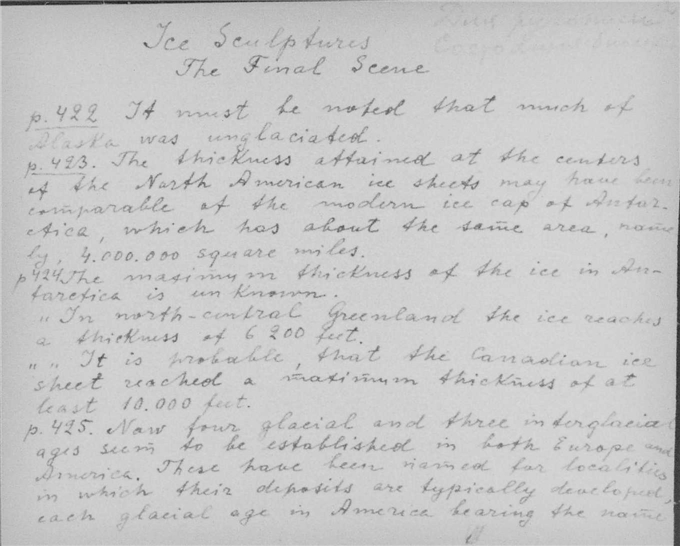 Для рукописи
Ice Sculptures
The Final Scene
p. 422 It must be noted that much of
Alaska was unglaciated.
p. 423. The thickness attained at the centers
of the North American ice sheets may have been
comparable of the modern ice cap of Antar-
ctica, which has about the same area, name
ly, 4.000.000 square miles.
p424 The maximum thickness of the ice in An-
tarctica is unknown.
„ In north-central Greenland the ice reaches
a thickness of 6 200 feet.
„ „ It is probable, that the Canadian ice
sheet reached a maximum thickness of at
least 10.000 feet.
p. 425. Now four glacial and three interglacial
ages seem to be established in both Europe and
America. These have been named for localities
in which their deposits are typically developed
each glacial age in America bearing the name